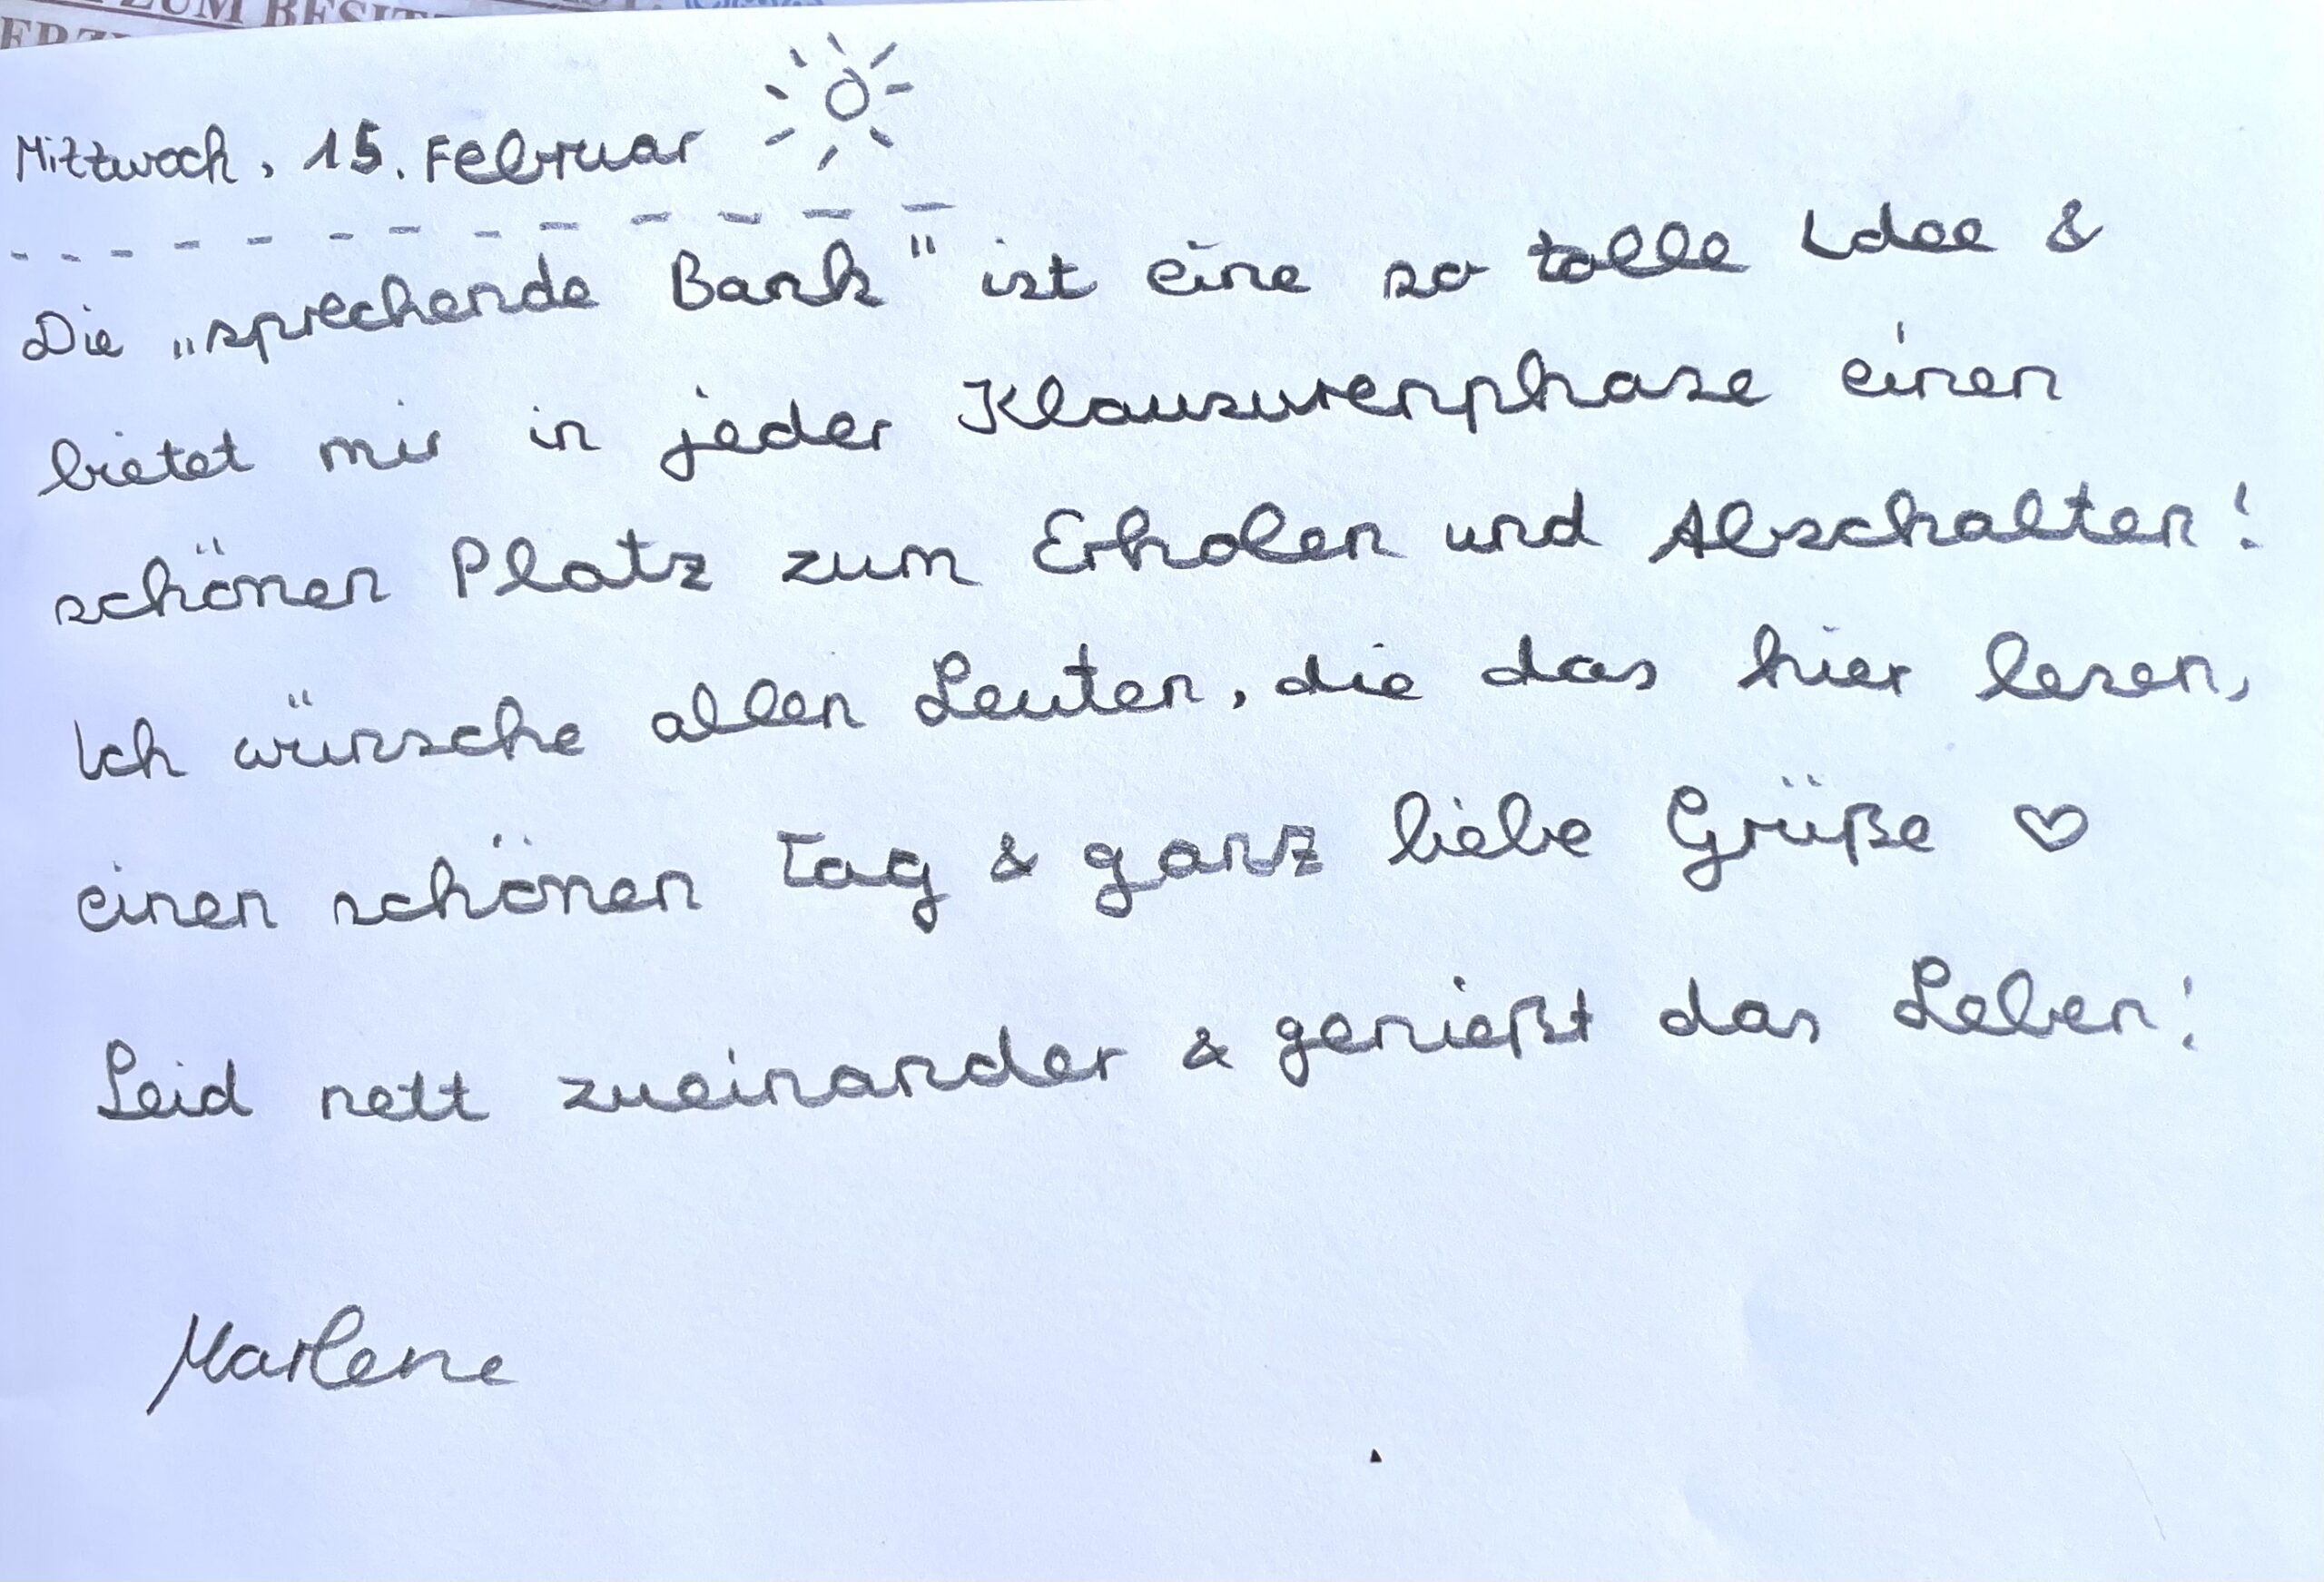 ZUM BESIT
Mittwoch, 15. Februar
Die „sprechende Bank" ist eine so tolle Idee &
bietet mir in jeder Klausurenphase einen
schönen Platz zum Erholen und Abschalten!
Ich wünsche allen Leuten, die das hier lesen,
einen schönen Tag & ganz liebe Grüße ♡
Seid nett zueinander & genießt das Leben!
Marlene